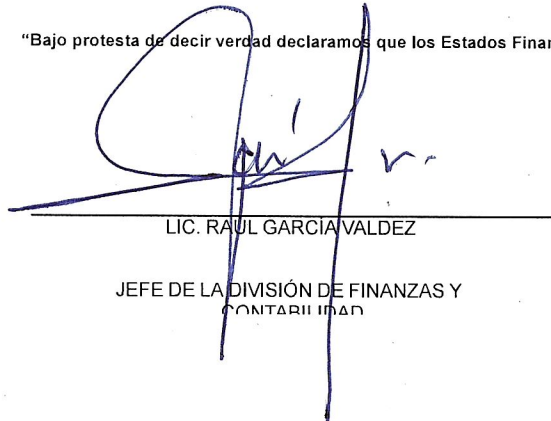 “Bajo protesta de decir verdad declaramos que los Estados Finan
LIC. RAUL GARCIA VALDEZ
JEFE DE LA DIVISIÓN DE FINANZAS Y
CONTABILIDAD